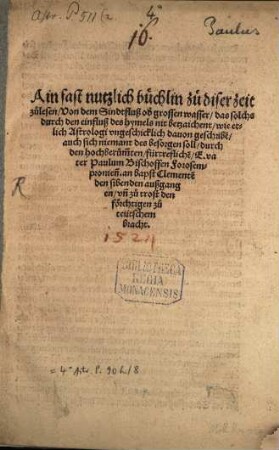 Astr. P. 511/2
4°
10.
Paulus
Ain fast nutzlich büchlin zů diser zeit
zůlesen/Von dem Sindtfluß ob grossen wasser/das solchs
durch den einfluß des hymels nit betzaichent/wie et-
lich Astrologi vngeschicklich dauon geschribē/
auch sich niemant des besorgen soll/durch
den hochberůmten/fürtreflichē/E. va
ter Paulum Bischoffen Forosem-
proniensē. an bapst Clementē
den sibenden außgang
en/vñ zů trost den
förchtigen zů
teütschem
bracht.
R
1524
BIBLIOTHECA
REGIA
MONACENSIS
= 4° Astr. P. 90 h/8